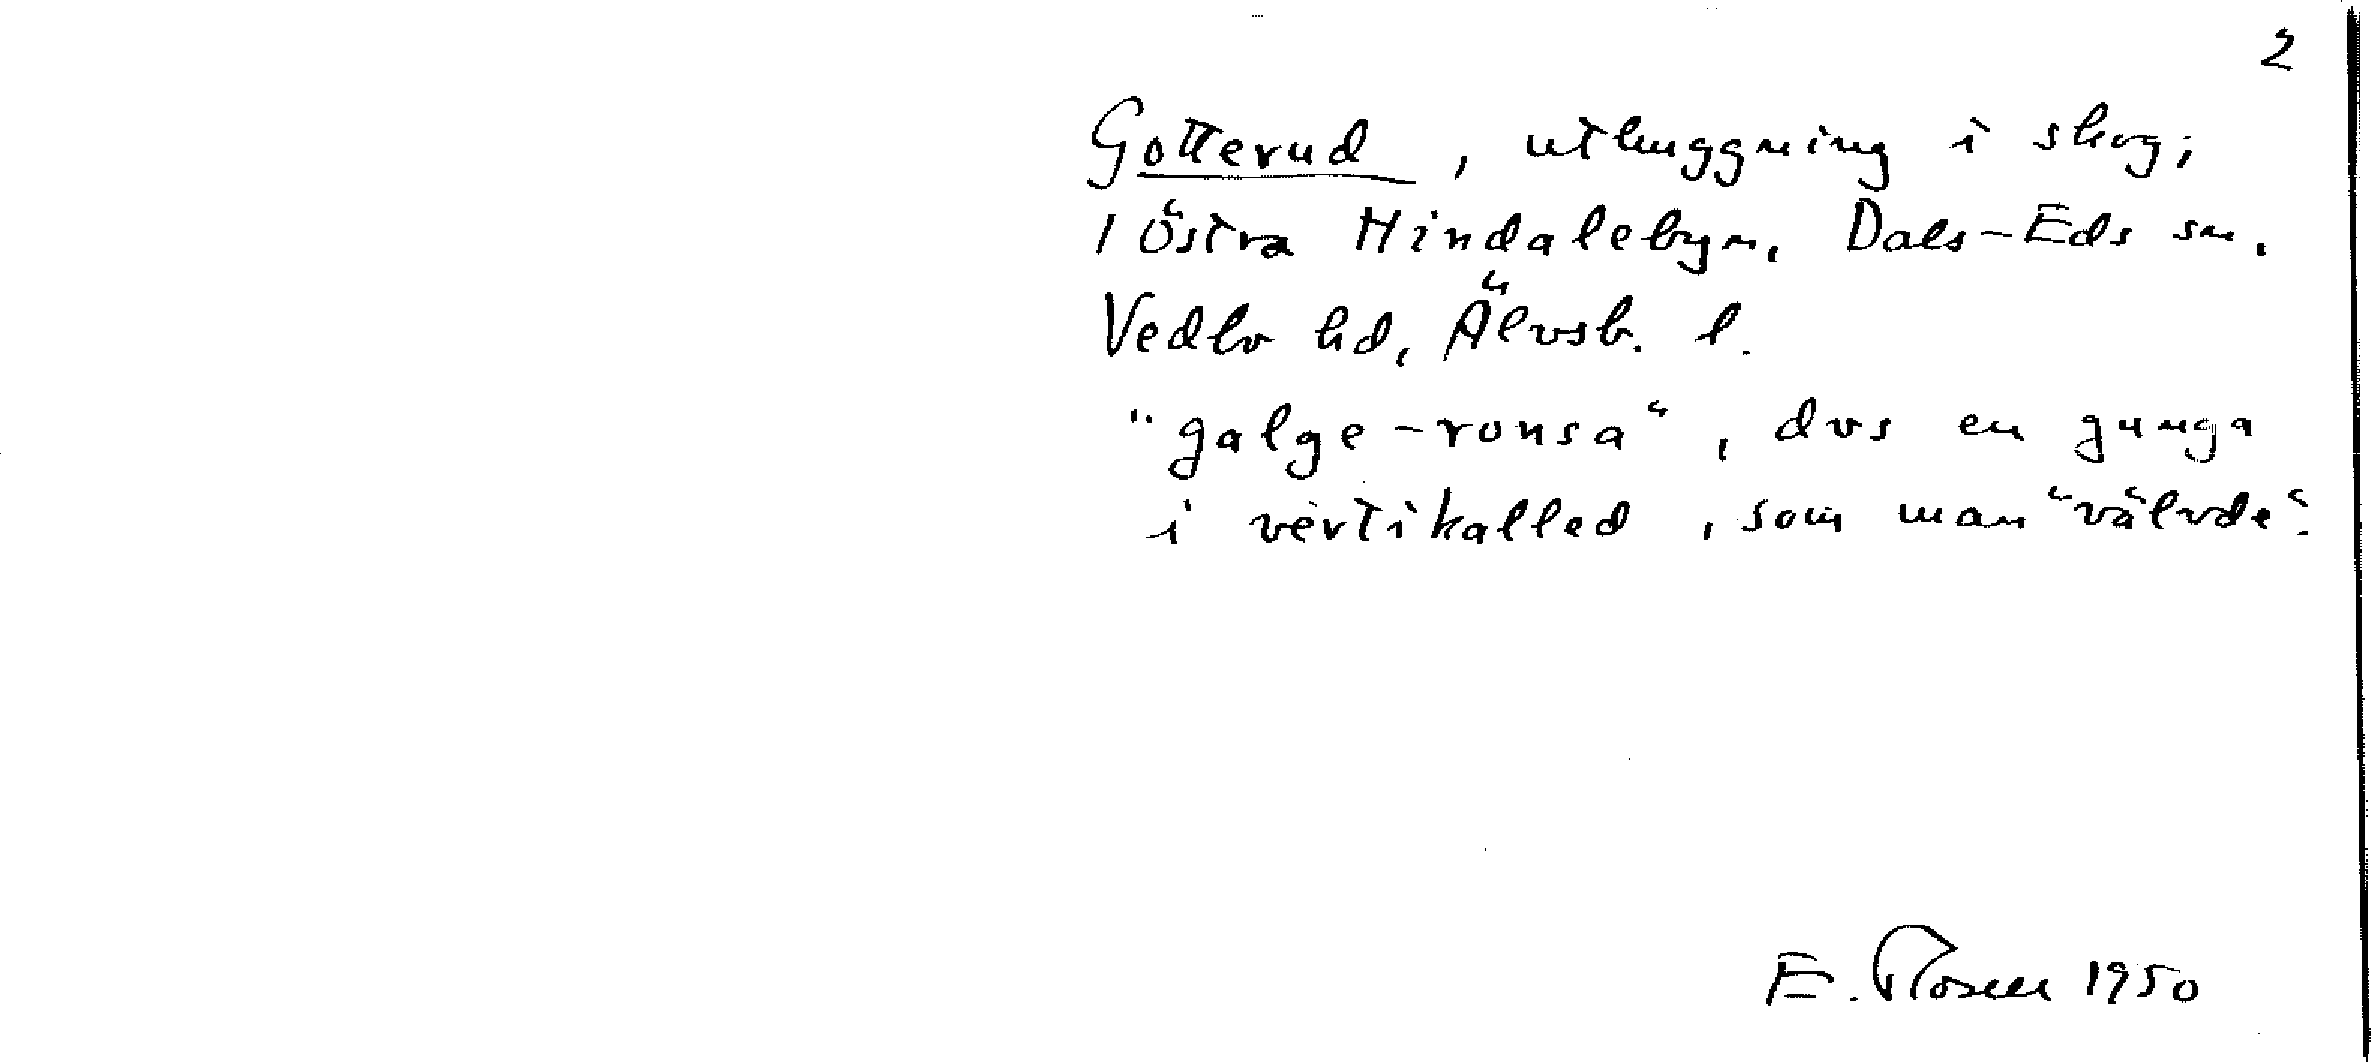 2
Gotterud, uthuggning i skog;
i Östra Hindalebyn, Dals-Eds sn,
Vedbo hd, Älvsb. l.
"galge-ronsa", dvs en gunga
i vertikalled, som man "välvde".
E. Rosell 1950